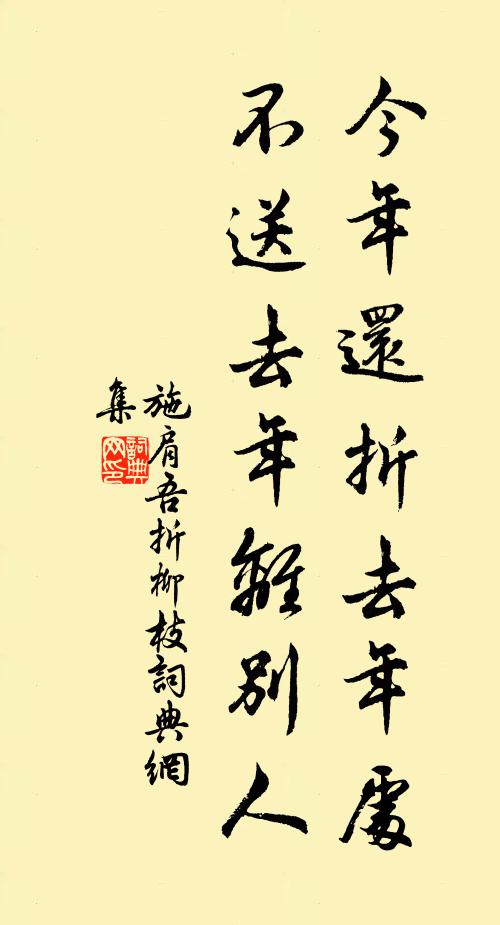 今年還折去年處
不送去年離別人
施肩吾折柳枝詞典網
集
詞典网印